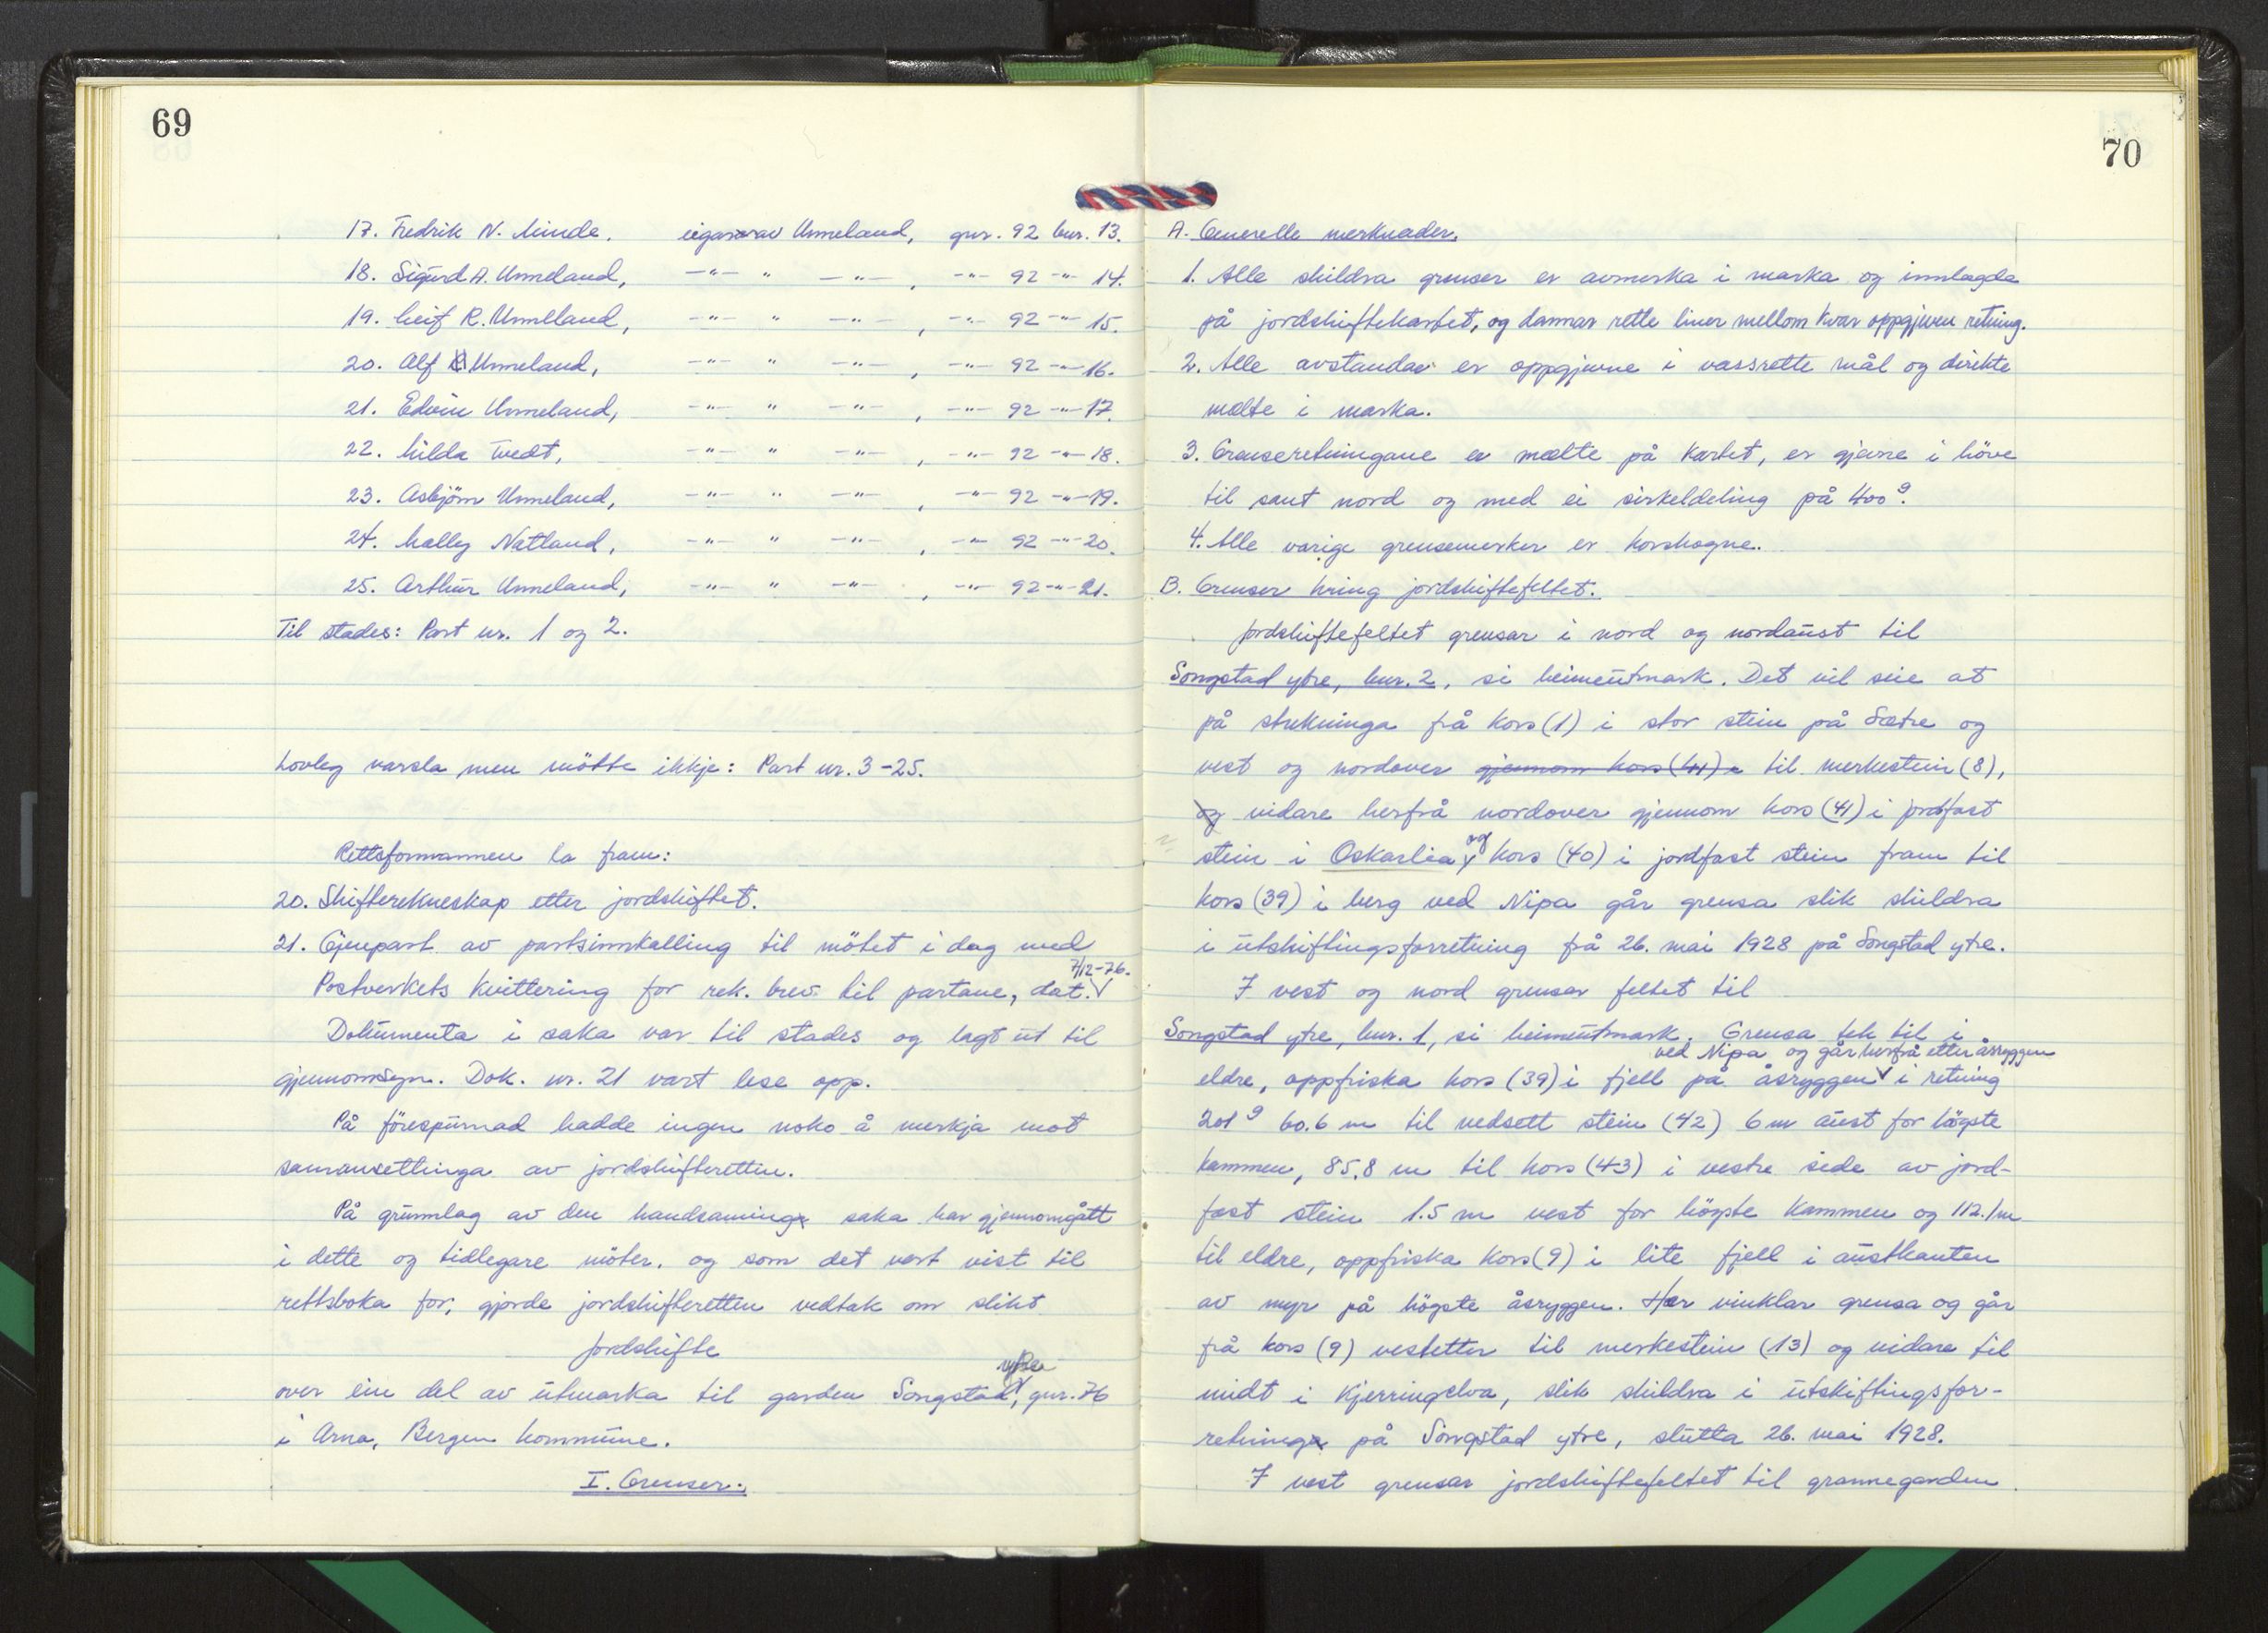 69
17. Fredrik N. Minde, eigar av Unneland, gnr. 92 bnr. 13.
18. Sigurd A. Unneland, -"- " -"- , -"- 92 -"- 14.
19. Leif R. Unneland, -"- " -"- , -"- 92 -"- 15.
20. Alf Unneland, -"- " -"- , -"- 92 -"- 16.
21. Edvin Unneland, -"- " -"- , -"- 92 -"- 17.
22. Milda Tvedt, -"- " -"- , -"- 92 -"- 18.
23. Asbjörn Unneland, -"- " -"- , -"- 92 -"- 19.
24. Natland, -"- " -"- , -"- 92 -"- 20.
25. Arthur Unneland, -"- " -"- , -"- 92 -"- 21.
Til stades: Part nr. 1 og 2.
Lovleg varsla men mötte ikkje: Part nr. 3-25.
Rettsformannen la fram:
20. Skifterekneskap etter jordskiftet.
21. Gjenpart av partsinnkalling til mötet i dag med
Postverkets kvittering for rek. brev til partane, dat. 7/12-76.
Dokumenta i saka var til stades og lagt ut til
gjennomsyn. Dok. nr. 21 vart lese opp.
På förespurnad hadde ingen noko å merkja mot
samansettinga av jordskifteretten.
På grunnlag av den handsaming saka har gjennomgått
i dette og tidlegare möter, og som det vert vist til
rettsboka for, gjorde jordskifteretten vedtak om slikt
Jordskifte
over ein del av utmarka til garden Songstad ytre, gnr. 76
i Arna, Bergen kommune.
I. Grenser.
70
A. Generelle merknader.
1. Alle skildra grenser er avmerka i marka og innlagde
på jordskiftekartet, og dannar rette liner mellom kvar oppgjeven retning.
2. Alle avstandar er oppgjevne i vassrette mål og direkte
mælte i marka.
3. Grenseretningane er mælte på kartet, er gjevne i höve
til sant nord og med ei sirkeldeling på 400g.
4. Alle varige grensemerker er korshogne.
B. Grenser kring jordskiftefeltet.
Jordskiftefeltet grensar i nord og nordaust til
Songstad ytre, bnr. 2, si heimeutmark. Det vil seie at
på strekninga frå kors (1) i stor stein på Sætre og
vest og nordover gjennom kors (41) til merkestein (8),
og vidare herfrå nordover gjennom kors (41) i jordfast
stein i Oskarlia og kors (40) i jordfast stein fram til
kors (39) i berg ved Nipa går grensa slik skildra
i utskiftingsforretning frå 26. mai 1928 på Songstad ytre.
I vest og nord grensar feltet til
Songstad ytre, bnr. 1, si heimeutmark. Grensa tek til i
eldre, oppfriska kors (39) i fjell på åsryggen ved Nipa og går herfrå etter åsryggen i retning
201g 60.6 m til nedsett stein (42) 6 m aust for högste
kammen, 85.8 m til kors (43) i vestre side av jord-
fast stein 1.5 m vest for högste kammen og 112.1 m
til eldre, oppfriska kors (9) i lite fjell i austkanten
av myr på högste åsryggen. Her vinklar grensa og går
frå kors (9) vestetter til merkestein (13) og vidare til
midt i Kjerringelva, slik skildra i utskiftingsfor-
retning på Songstad ytre, slutta 26. mai 1928.
I vest grensar jordskiftefeltet til grannegarden